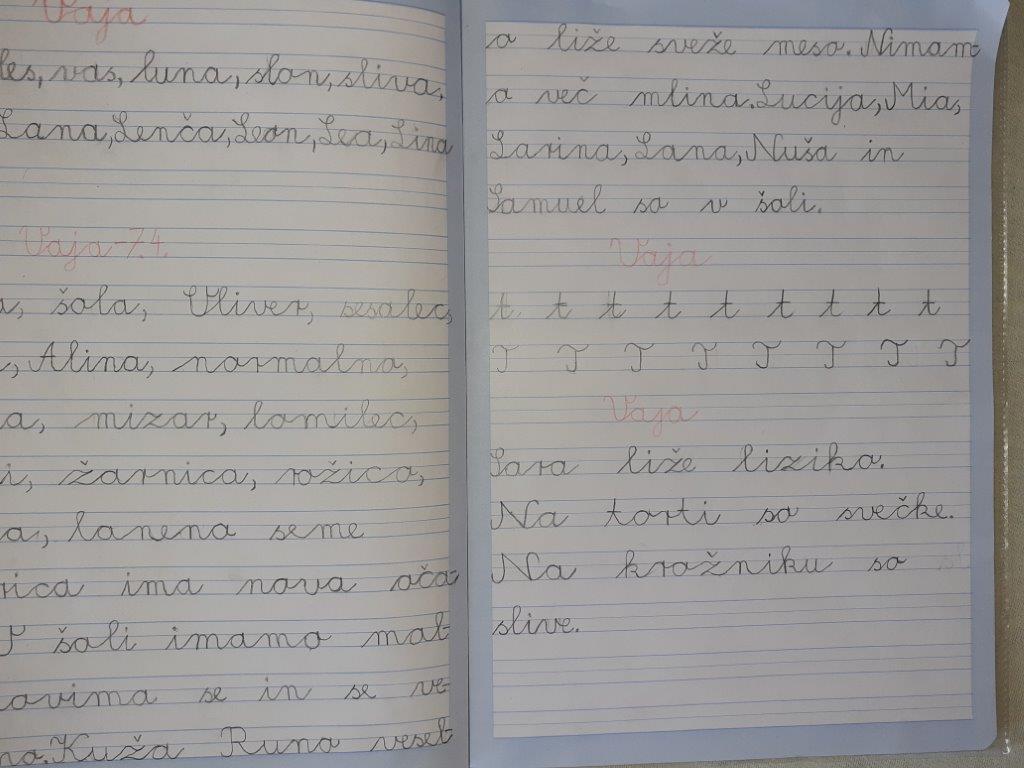 Vaja
les, vas, luna, slon, sliva,
Lana, Lenča, Leon, Lea, Lina
Vaja-7.4.
šola, Oliver, sesalec,
Alina, normalna,
mizar, lomilec,
žarnica, rožica,
lanena seme
ima nova oča-
V šoli imamo mat
se in se ve-
Kuža Runo vesel
o liže sveže meso. Nimam
o več mlina. Lucija, Mia,
Larina, Lana, Nuša in
Samuel so v šoli.
Vaja
t t t t t t t t t
T T T T T T T T
Vaja
Sara liže lizika.
Na torti so svečke.
Na krožniku so
slive.